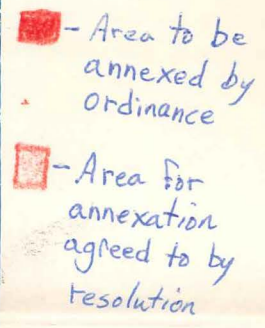 - Area to be
annexed by
ordinance
- Area for
annexation
agreed to by
resolution